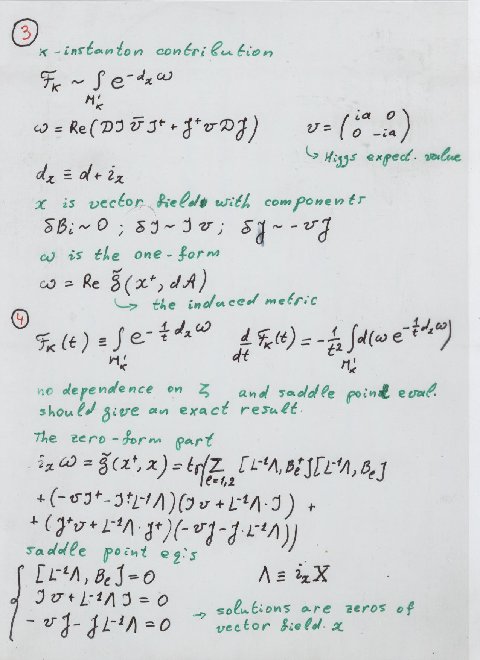 ③
k-instanton contribution
F_k ~ ∫_{M'_k} e^{-d_x ω}
ω = Re(DI v̄ I⁺ + J⁺ v DJ)   v = (ia 0 / 0 -ia)
↳ Higgs expect. value
d_x ≡ d + i_x
x is vector field with components
δB_i ~ 0 ; δI ~ I v ; δJ ~ - v J
ω is the one-form
ω = Re g̃ (x⁺, dA)
↳ the induced metric
④
F_k (t) ≡ ∫_{M'_k} e^{-1/t d_x ω}   d/dt F_k (t) = -1/t² ∫_{M'_k} d(ω e^{-1/t d_x ω})
no dependence on ζ and saddle point eval.
should give an exact result.
The zero-form part
i_x ω = g̃ (x⁺, x) = tr(∑_{ℓ=1,2} [L⁻¹Λ, B_ℓ⁺][L⁻¹Λ, B_ℓ]
+ (-v I⁺ - I⁺ L⁻¹Λ)(I v + L⁻¹Λ · I) +
+ (J⁺ v + L⁻¹Λ · J⁺)(-v J - J · L⁻¹Λ))
saddle point eq's
[L⁻¹Λ, B_ℓ] = 0   Λ ≡ i_x X
I v + L⁻¹Λ I = 0
- v J - J L⁻¹Λ = 0 → solutions are zeros of
vector field x